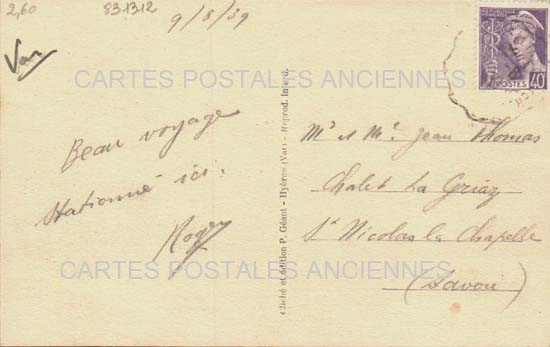 2,60
831312
9/8/39
Var
CARTES POSTALES ANCIENNES
RÉPUBLIQUE FRANÇAISE
POSTES 40
Beau voyage
Stationné ici.
Roger
Cliché et édition P. Géant - Hyères (Var) - Reprod. Interd.
Mr et Me Jean Thomas
Chalet La Griaz
St Nicolas la Chapelle
(Savoie)
CARTES POSTALES ANCIENNES